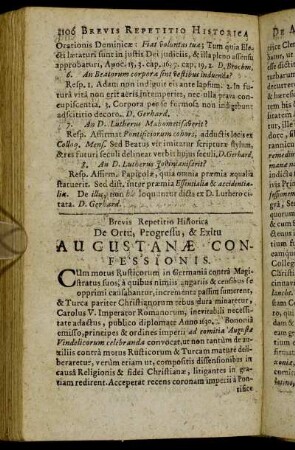 2106 BREVIS REPETITIO HISTORICA
Orationis Dominicæ: Fiat voluntas tua; Tum quia Ele-
cti lætaturi sunt in justis Dei judiciis, & illa pleno assensu
approbaturi, Apoc. 15, 3. cap. 16, 7. cap. 19, 2. D. Brochm.
6. An Beatorum corpora sint vestibus induenda?
Resp. 1. Adam non indiguit eis ante lapsum. 2. In futurâ
vitâ non erit aëris intemperies, nec olla prava con-
cupiscentia, 3. Corpora per se formosa non indigebunt
adscititio decoro. D. Gerhard.
7. An D. Lutherus Mahometisaverit?
Resp. Affirmat Pontificiorum cohors; adductis locis ex
Colloq. Mens. Sed Beatus vir imitatur scripturæ stylum,
& res futuri seculi delineat verbis hujus seculi, D. Gerhard.
8. An D. Lutherus Jovinianizârit?
Resp. Affirm. Papicolæ, quia omnia præmia æqualia
statuerit. Sed dist. inter præmia Essentialia & accidentia-
lia. De illis, non his loquuntur dicta ex D. Luthero ci-
tata. D. Gerhard.
Brevis Repetitio Historica
De Ortu, Progressu, & Exitu
AUGUSTANÆ CON-
FESSIONIS.
CUm motus Rusticorum in Germaniâ contrà Magi-
stratus suos, à quibus nimiis angariis & censibus se
opprimi causabantur, incrementa passim sumerent,
& Turca pariter Christianorum rebus dura minaretur,
Carolus V. Imperator Romanorum, inevitabili necessi-
tate adactus, publico diplomate Anno 1530. Bononiâ
emisso, principes & ordines imperii ad comitia Augustæ
Vindelicorum celebranda convocat, ut non tantùm de au-
xiliis contrà motus Rusticorum & Turcam mature deli-
beraretur, verùm etiam ut, compositis dissensionibus in
causâ Religionis & fidei Christianæ, litigantes in gra-
tiam redirent. Acceperat recens coronam imperii à Pon-
tifice